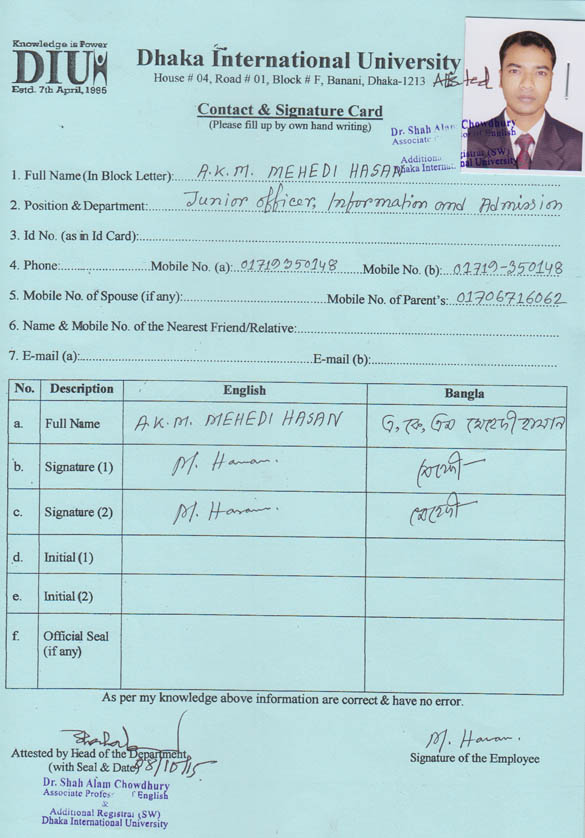 Knowledge is Power
DIU
Estd. 7th April, 1995
Dhaka International University
House # 04, Road # 01, Block # F, Banani, Dhaka-1213
Attested
Contact & Signature Card
(Please fill up by own hand writing)
Dr. Shah Alam Chowdhury
Associate of English
Additional Registrar (SW)
Dhaka International University
1. Full Name (In Block Letter): A.K.M. MEHEDI HASAN
2. Position & Department: Junior officer, Information and Admission
3. Id No. (as in Id Card):
4. Phone: Mobile No. (a): 01719350148 Mobile No. (b): 01719-350148
5. Mobile No. of Spouse (if any): Mobile No. of Parent's: 01706716062
6. Name & Mobile No. of the Nearest Friend/Relative:
7. E-mail (a): E-mail (b):
No. Description English Bangla
a. Full Name A.K.M. MEHEDI HASAN এ, কে, এম মেহেদী হাসান
b. Signature (1) M. Hasan. মেহেদী
c. Signature (2) M. Hasan. মেহেদী
d. Initial (1)
e. Initial (2)
f. Official Seal
(if any)
As per my knowledge above information are correct & have no error.
M. Hasan.
Attested by Head of the Department
Signature of the Employee
(with Seal & Date) /10/15
Dr. Shah Alam Chowdhury
Associate Profes of English
&
Additional Registrar (SW)
Dhaka International University